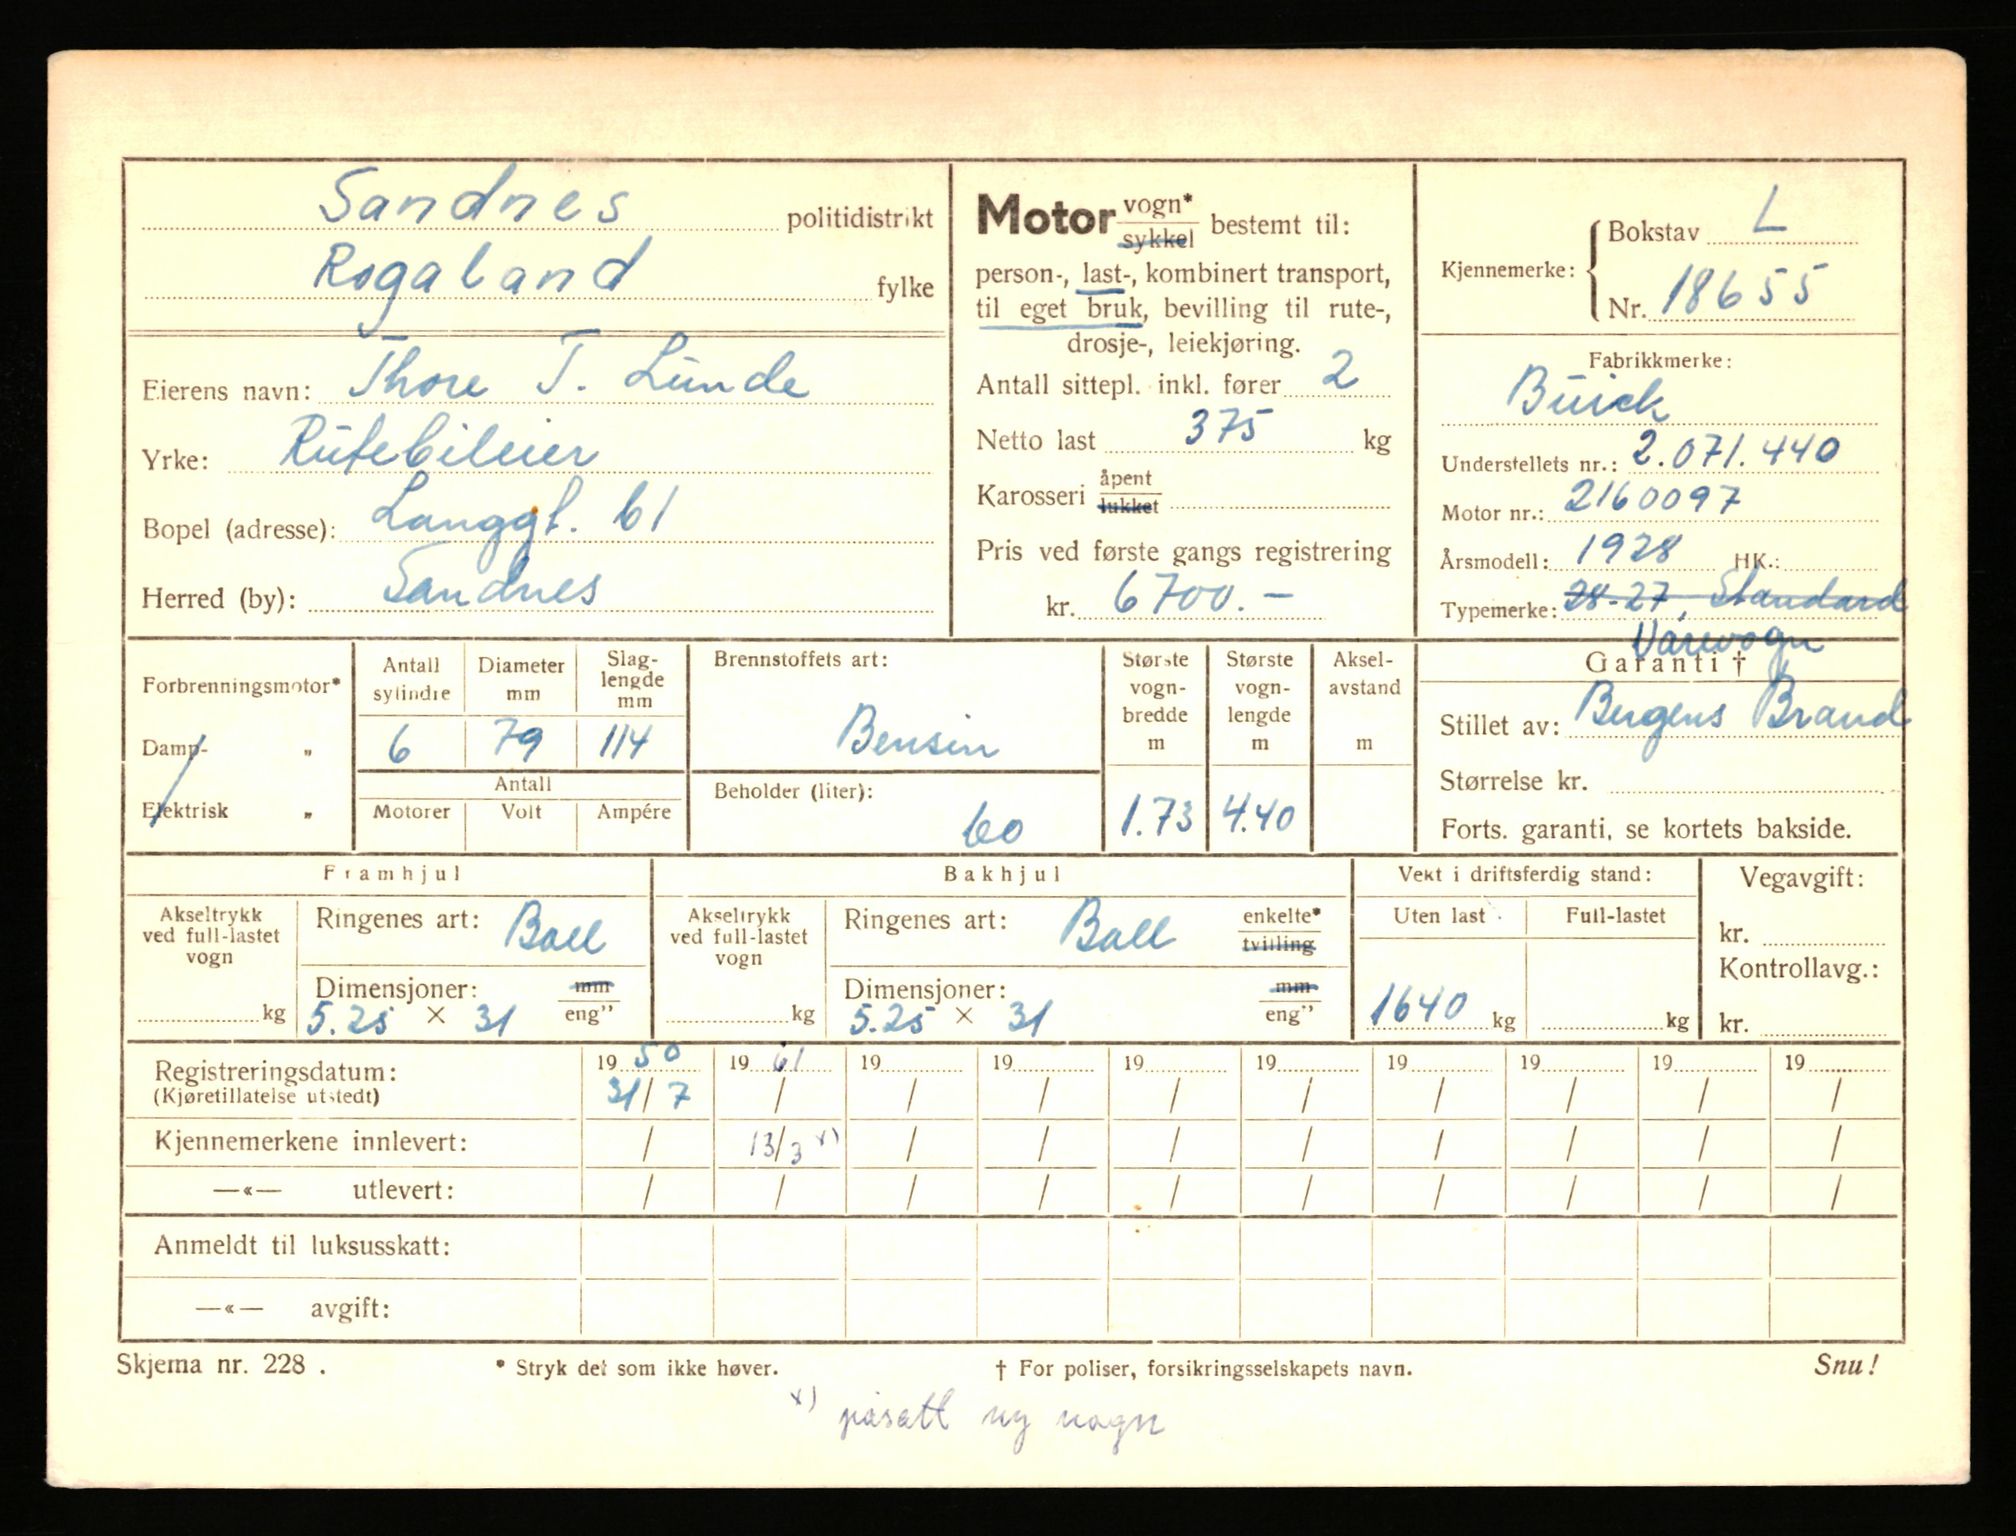 Sandnes politidistrikt
Rogaland fylke
Eierens navn: Thore T. Lunde
Yrke: Rutebileier
Bopel (adresse): Langgt. 61
Herred (by): Sandnes
Motor vogn* / sykkel bestemt til:
person-, last-, kombinert transport,
til eget bruk, bevilling til rute-,
drosje-, leiekjøring.
Antall sittepl. inkl. fører 2
Netto last 375 kg
Karosseri åpent / lukket
Pris ved første gangs registrering
kr. 6700.-
Kjennemerke: Bokstav L
Nr. 18655
Fabrikkmerke:
Buick
Understellets nr.: 2.071.440
Motor nr.: 2160097
Årsmodell: 1928 HK.:
Typemerke: 28-27, Standard
Varevogn
Garanti †
Stillet av: Bergens Brand
Størrelse kr.
Forts. garanti, se kortets bakside.
Forbrenningsmotor*
Damp- "
Elektrisk "
Antall sylindre
Diameter mm
Slag-lengde mm
6 79 114
Antall
Motorer Volt Ampére
Brennstoffets art:
Bensin
Beholder (liter):
60
Største vogn-bredde m
1.73
Største vogn-lengde m
4.40
Aksel-avstand m
Framhjul
Akseltrykk ved full-lastet vogn
kg
Ringenes art: Ball
Dimensjoner: mm / eng"
5.25 × 31
Bakhjul
Akseltrykk ved full-lastet vogn
kg
Ringenes art: Ball enkelte* / tvilling
Dimensjoner: mm / eng"
5.25 × 31
Vekt i driftsferdig stand:
Uten last Full-lastet
1640 kg kg
Vegavgift:
kr.
Kontrollavg.:
kr.
Registreringsdatum: 19 50 19 61 19 19 19 19 19 19 19 19
(Kjøretillatelse utstedt) 31/7 / / / / / / / / /
Kjennemerkene innlevert: / 13/3 x) / / / / / / / /
—«— utlevert: / / / / / / / / / /
Anmeldt til luksusskatt:
—«— avgift:
Skjema nr. 228 . * Stryk det som ikke høver. † For poliser, forsikringsselskapets navn. Snu!
x) påsatt ny vogn